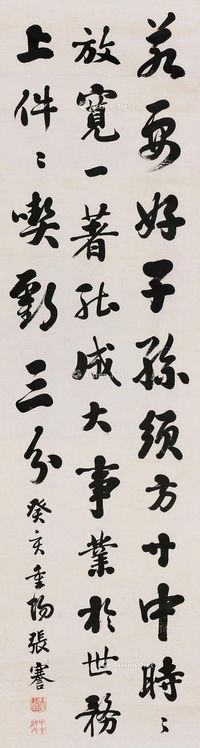 若要好子孫須方寸中時〻
放寬一著能成大事業於世務
上件〻喫虧三分
癸亥重陽張謇